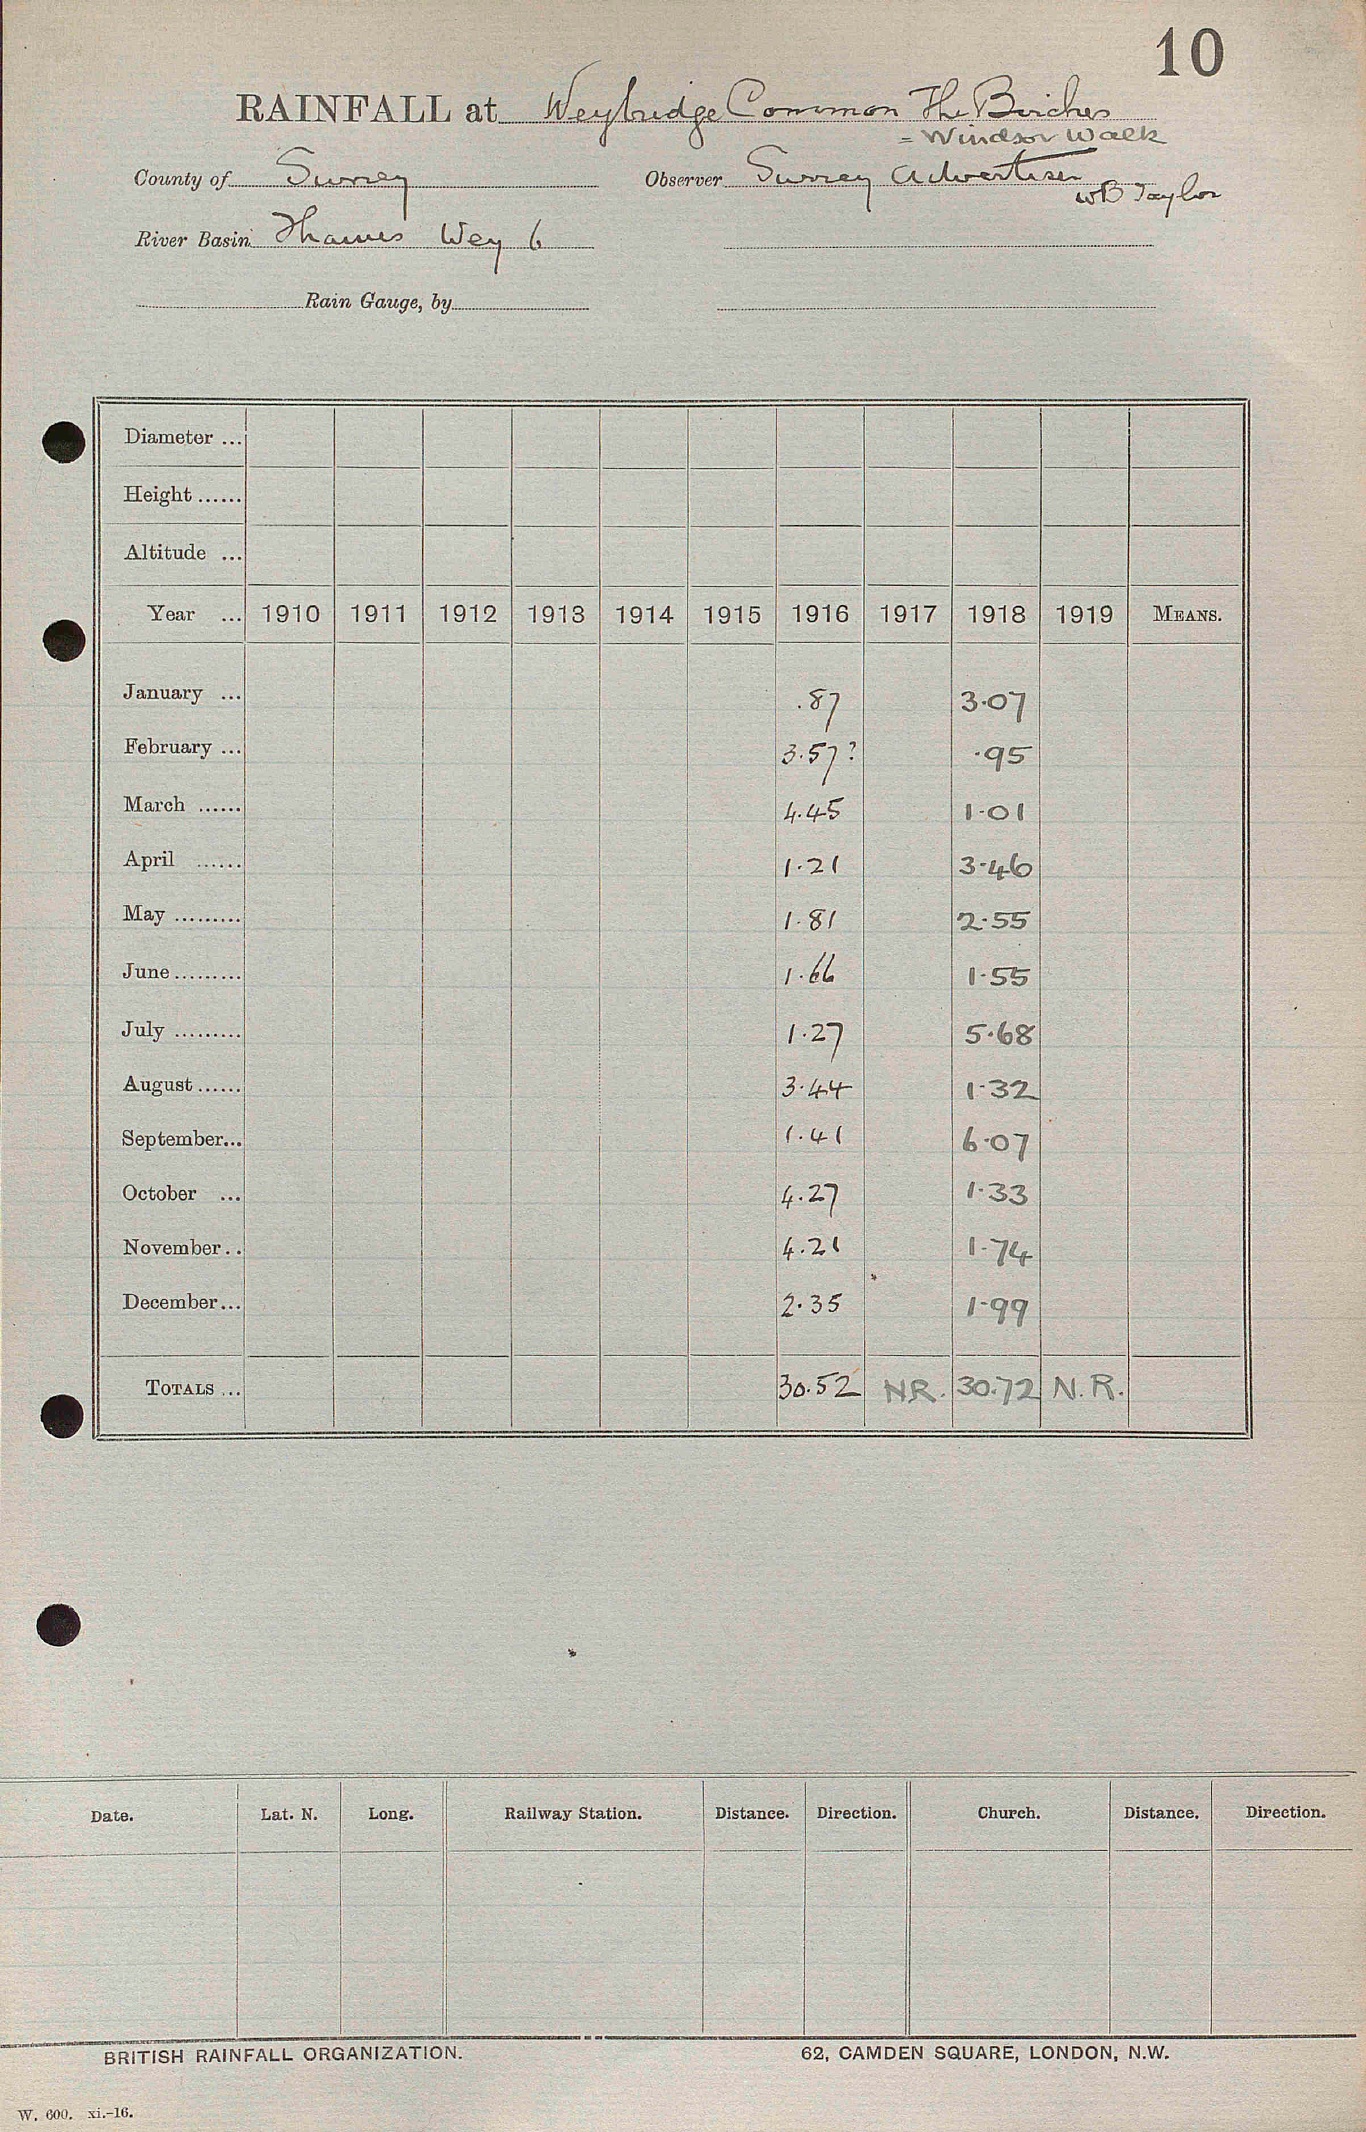 10
RAINFALL at Weybridge Common The Birches
= Windsor Walk
County of Surrey Observer Surrey Advertiser
WB Taylor
River Basin Thames Wey 6
Rain Gauge, by
Diameter ...
Height ......
Altitude ...
Year ... 1910 1911 1912 1913 1914 1915 1916 1917 1918 1919 MEANS.
January ... .87 3.07
February ... 3.57? .95
March ...... 4.45 1.01
April ...... 1.21 3.46
May ......... 1.81 2.55
June ......... 1.66 1.55
July ......... 1.27 5.68
August ...... 3.44 1.32
September... 1.41 6.07
October ... 4.27 1.33
November.. 4.21 1.74
December... 2.35 1.99
TOTALS ... 30.52 N.R. 30.72 N.R.
Date. Lat. N. Long. Railway Station. Distance. Direction. Church. Distance. Direction.
BRITISH RAINFALL ORGANIZATION. 62, CAMDEN SQUARE, LONDON, N.W.
W. 600. xi.-16.